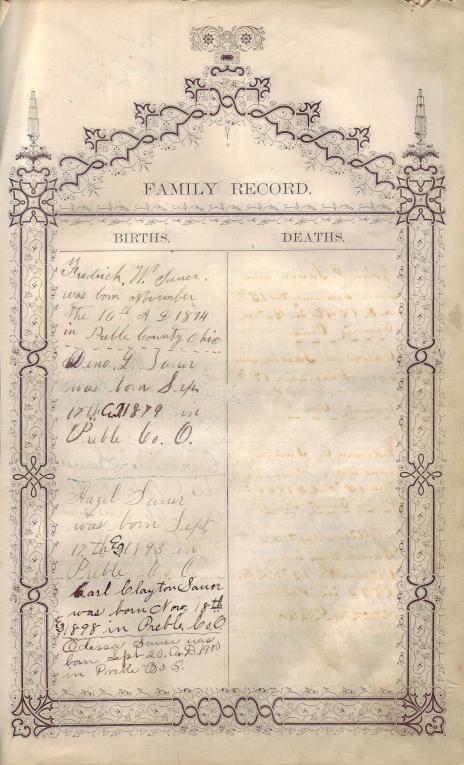 FAMILY RECORD.
BIRTHS. DEATHS.
Fredrick. W. Sauer.
was born November
the 16th A D 1874
in Preble County Ohio
Dena. L. Sauer
was born Sep.
17th A.D 1879 in
Preble Co. O.
Hazel Sauer
was born Sept
17th 1893 in
Preble Co O
Earl Clayton Sauer
was born Nov, 18th
1898 in Preble Co O
Odessa Sauer was
born Sept 20. A.D. 1900
in Preble Co O.